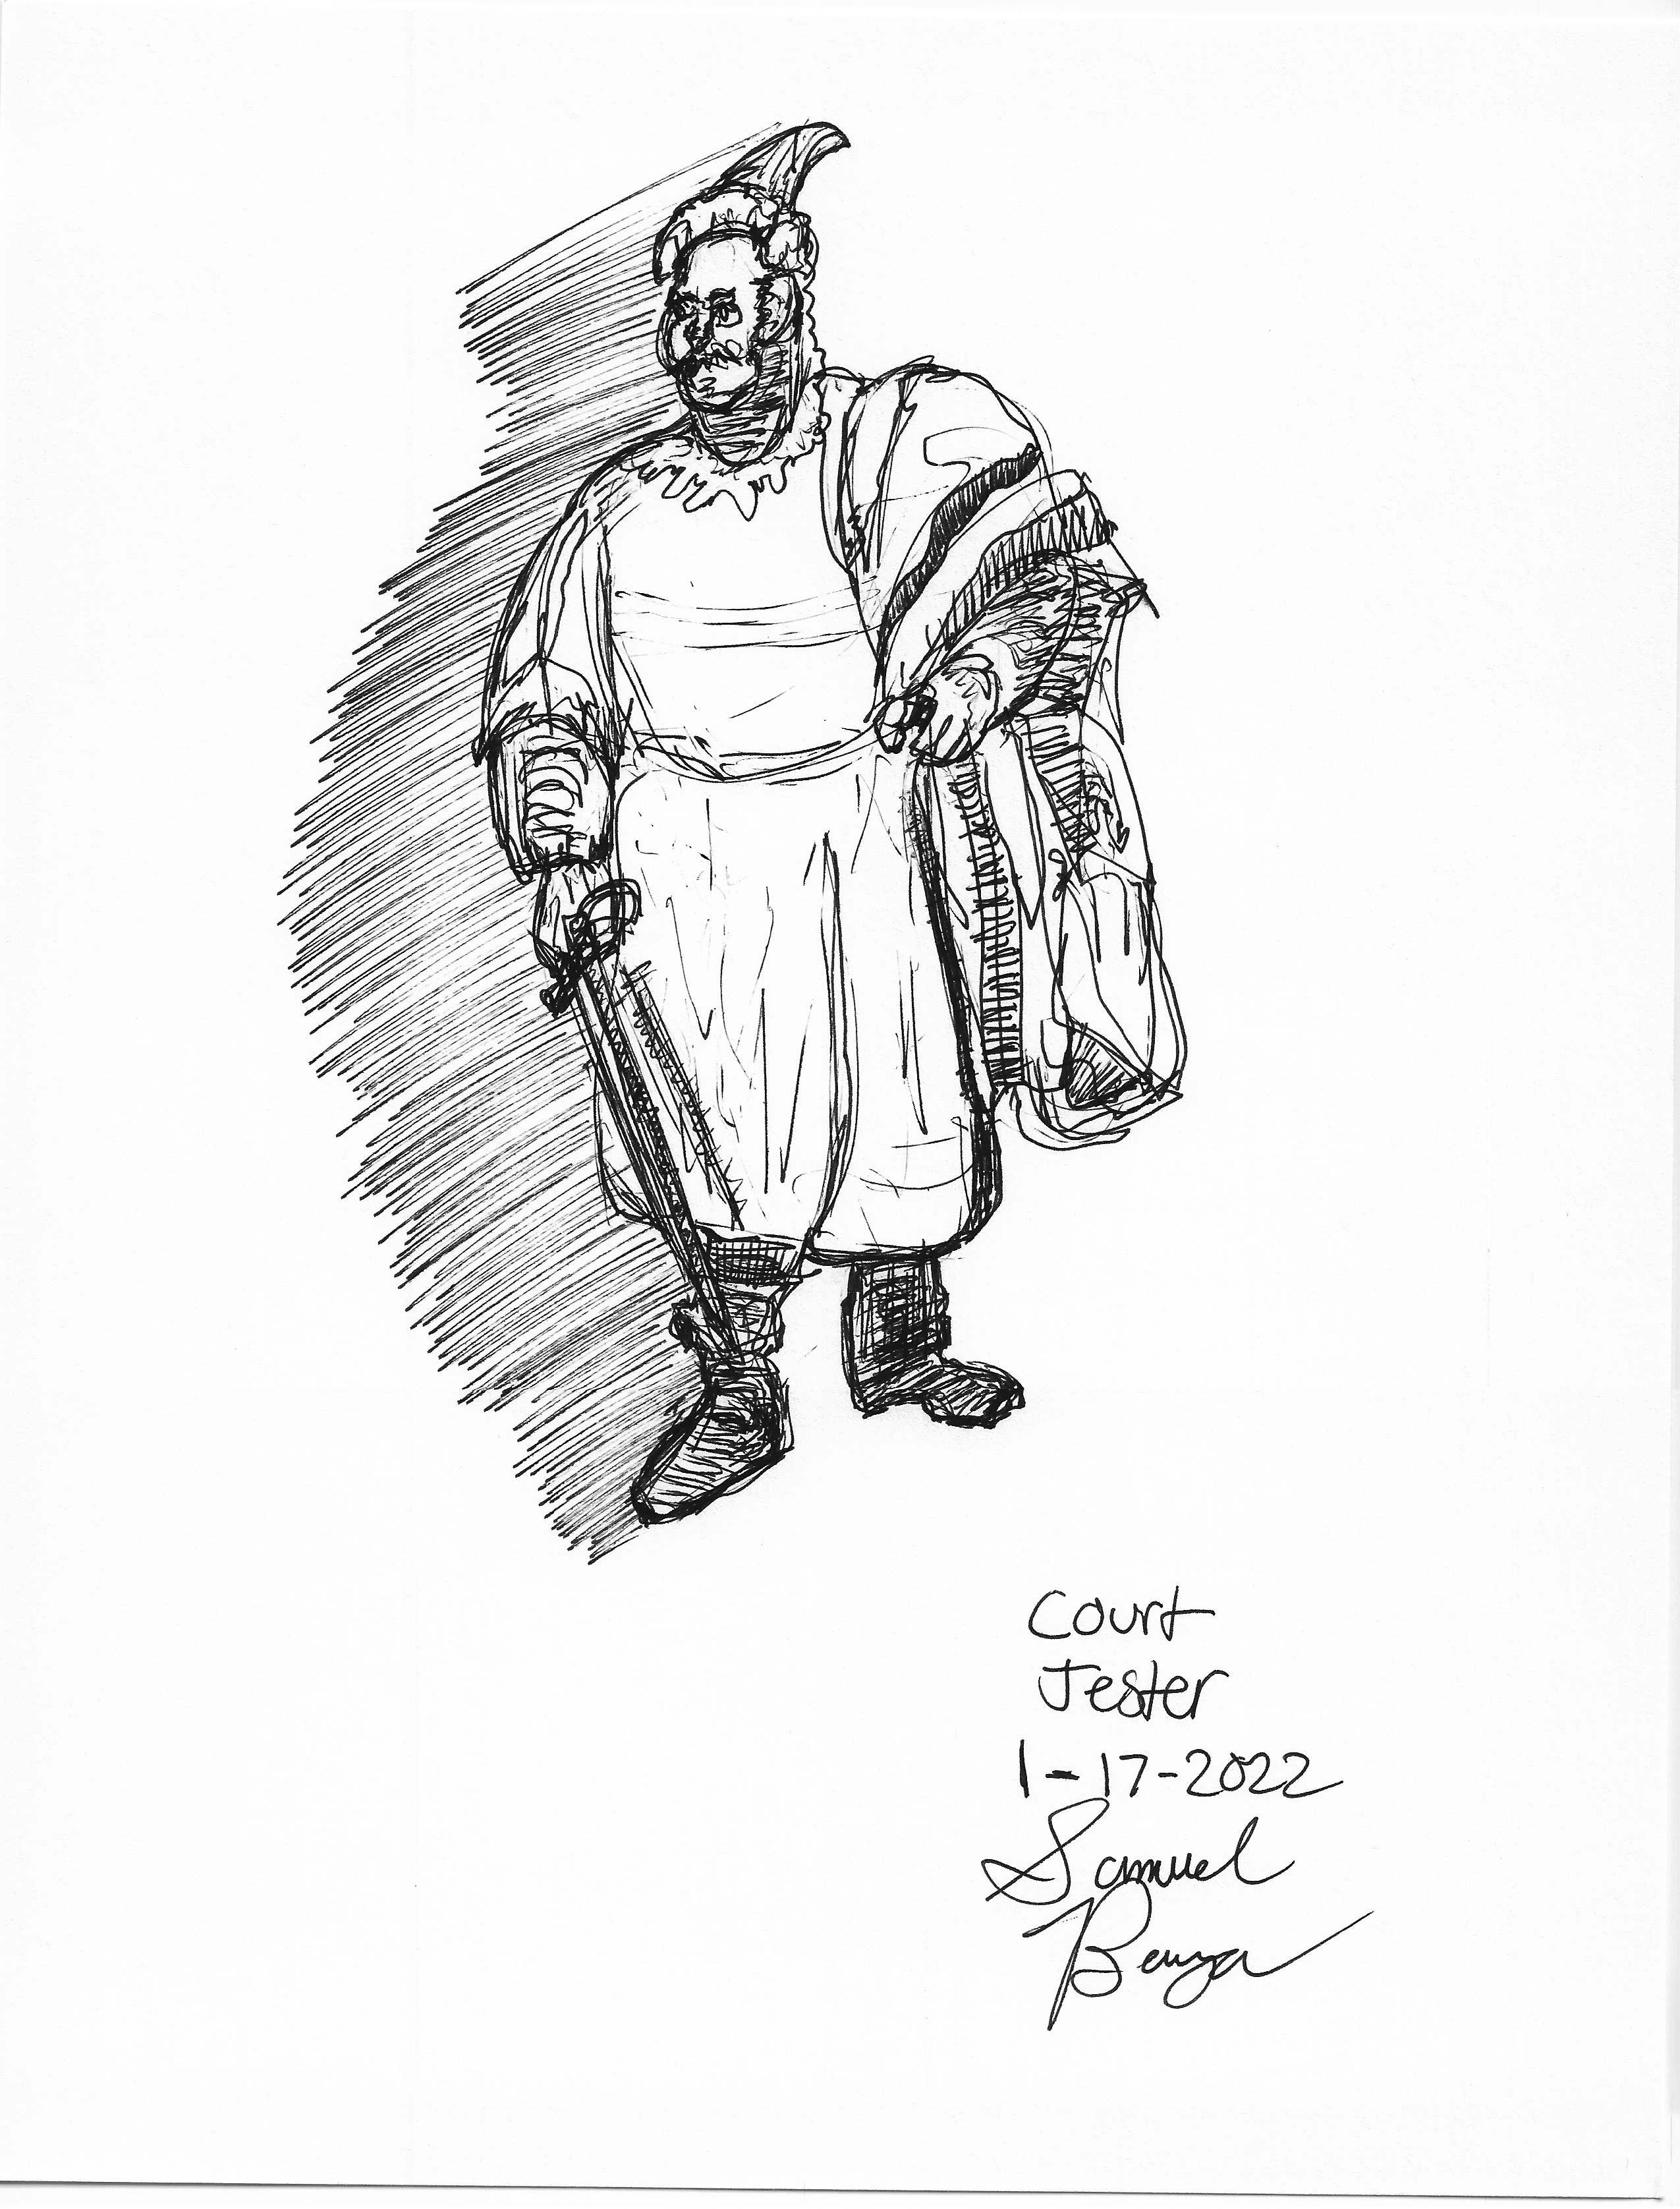 Court
Jester
1-17-2022
Samuel